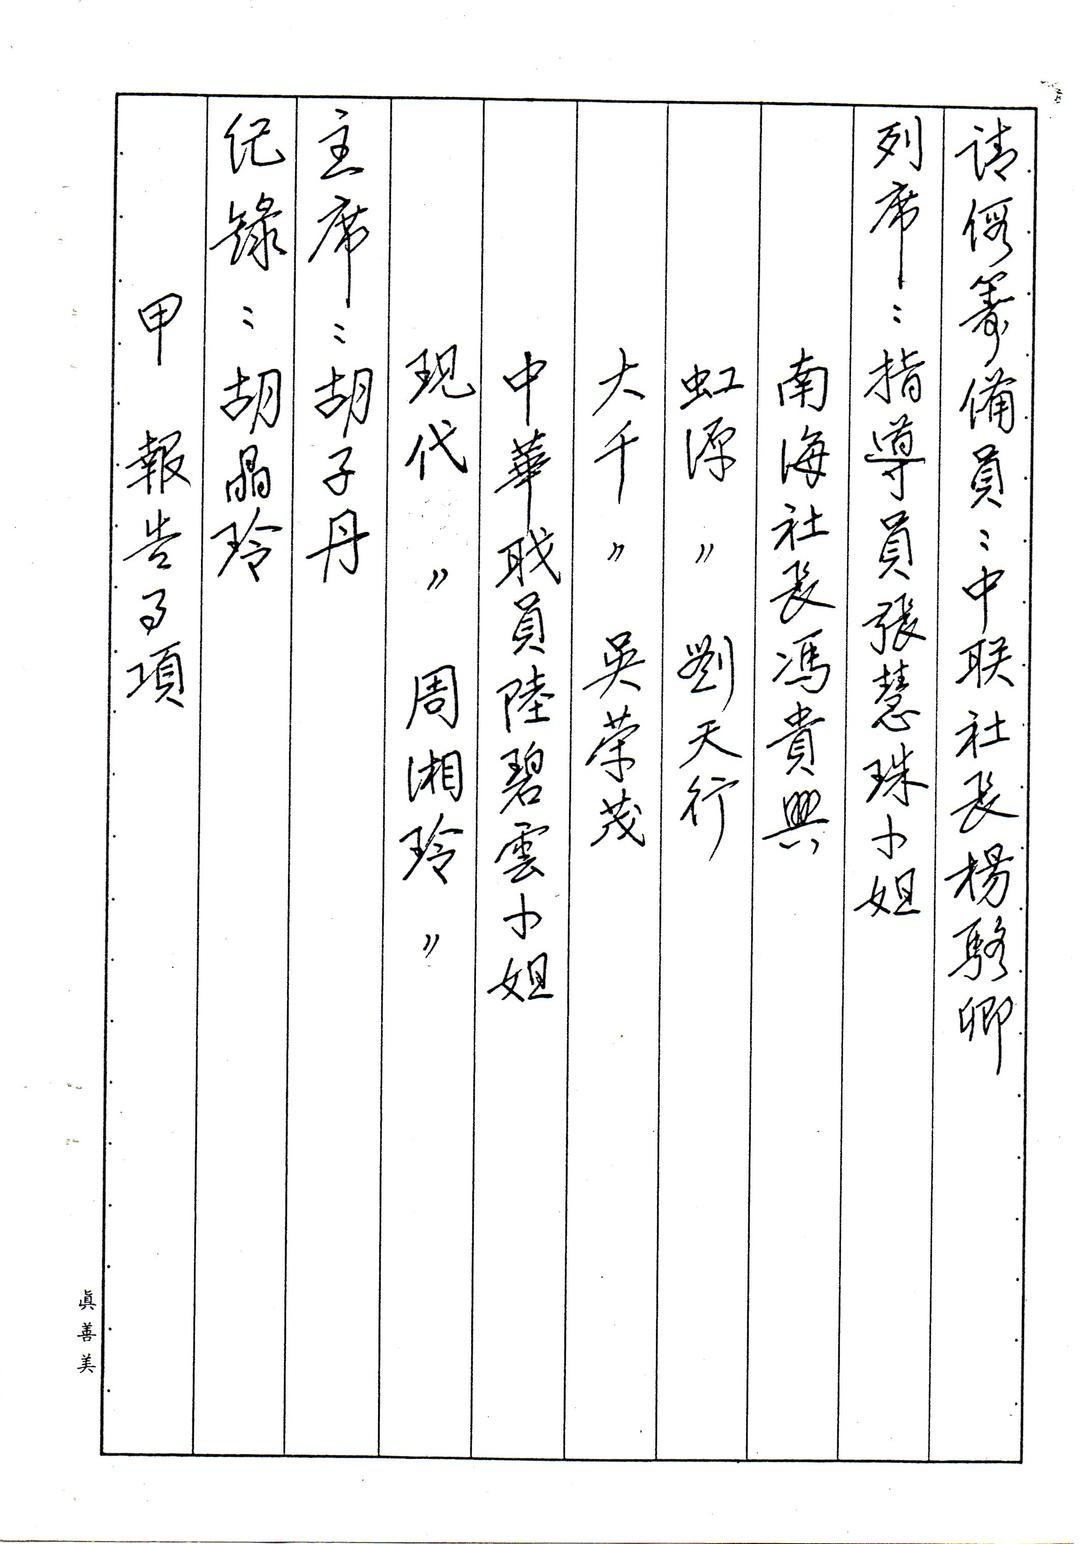 请假筹備員：中联社长楊駱卿
列席：指導員張慧珠小姐
南海社长馮貴興
虹源〃劉天行
大千〃吳荣茂
中華职員陸碧雲小姐
现代〃周湘玲〃
主席：胡子丹
纪錄：胡晶玲
甲 報告事項
眞善美